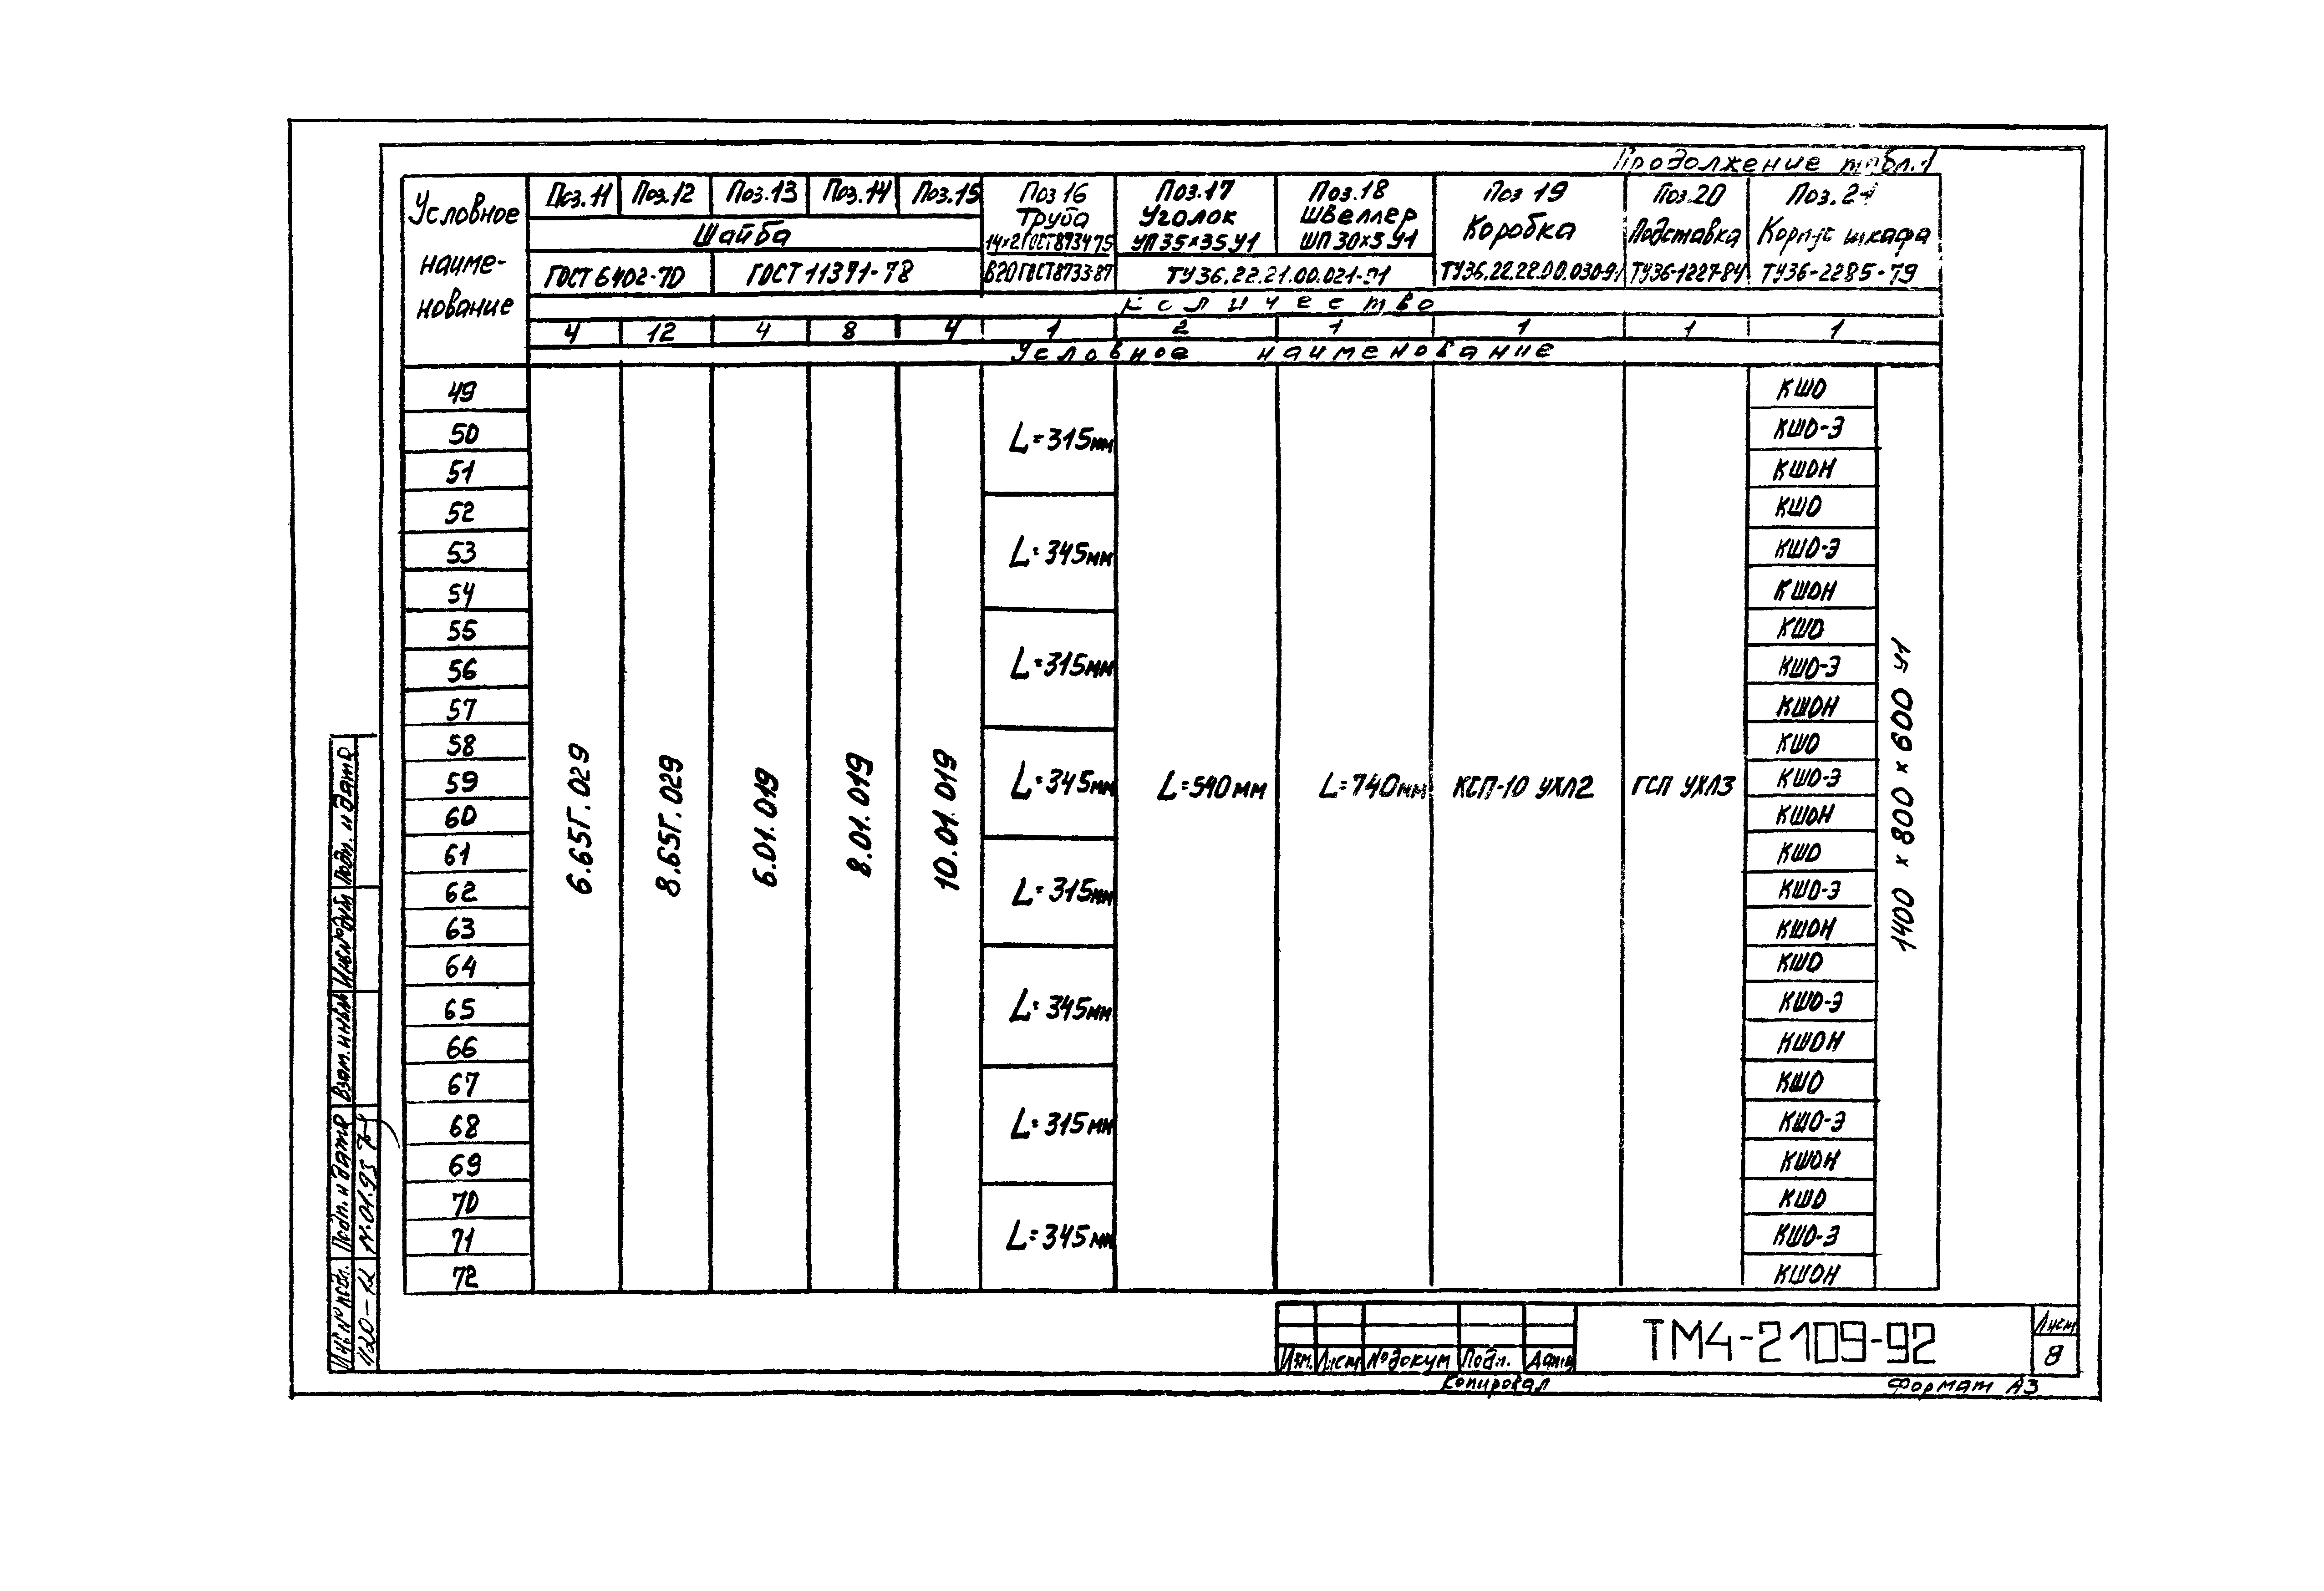 Продолжение табл.1
Условное наименование
Поз.11 Поз.12 Поз.13 Поз.14 Поз.15 Поз 16 Поз.17 Поз.18 Поз 19 Поз.20 Поз.21
Шайба Труба Уголок Швеллер Коробка Подставка Корпус шкафа
14×2 ГОСТ 8734-75 УП 35×35 У1 ШП 30×5 У1
ГОСТ 6402-70 ГОСТ 11371-78 В20 ГОСТ 8733-87 ТУ36.22.21.00.021-91 ТУ36.22.22.00.030-91 ТУ36-1227-84 ТУ36-2285-79
Количество
4 12 4 8 4 1 2 1 1 1 1
Условное наименование
49 КШО
50 L=315мм КШО-Э
51 КШОН
52 КШО
53 L=345мм КШО-Э
54 КШОН
55 КШО
56 L=315мм КШО-Э
57 КШОН
58 КШО
59 L=345мм L=540мм L=740мм КСП-10 УХЛ2 ГСП УХЛ3 КШО-Э
60 КШОН
61 КШО
62 L=315мм КШО-Э
63 КШОН
64 КШО
65 L=345мм КШО-Э
66 КШОН
67 КШО
68 L=315мм КШО-Э
69 КШОН
70 КШО
71 L=345мм КШО-Э
72 КШОН
6.65Г.029
8.65Г.029
6.01.019
8.01.019
10.01.019
1400 × 800 × 600 У1
Инв № подл. Подп. и дата Взам. инв № Инв.№ дубл Подп. и дата
1120-12 11.01.93
Изм. Лист № докум Подп. Дата
ТМ4-2109-92
Лист
8
Копировал
Формат А3